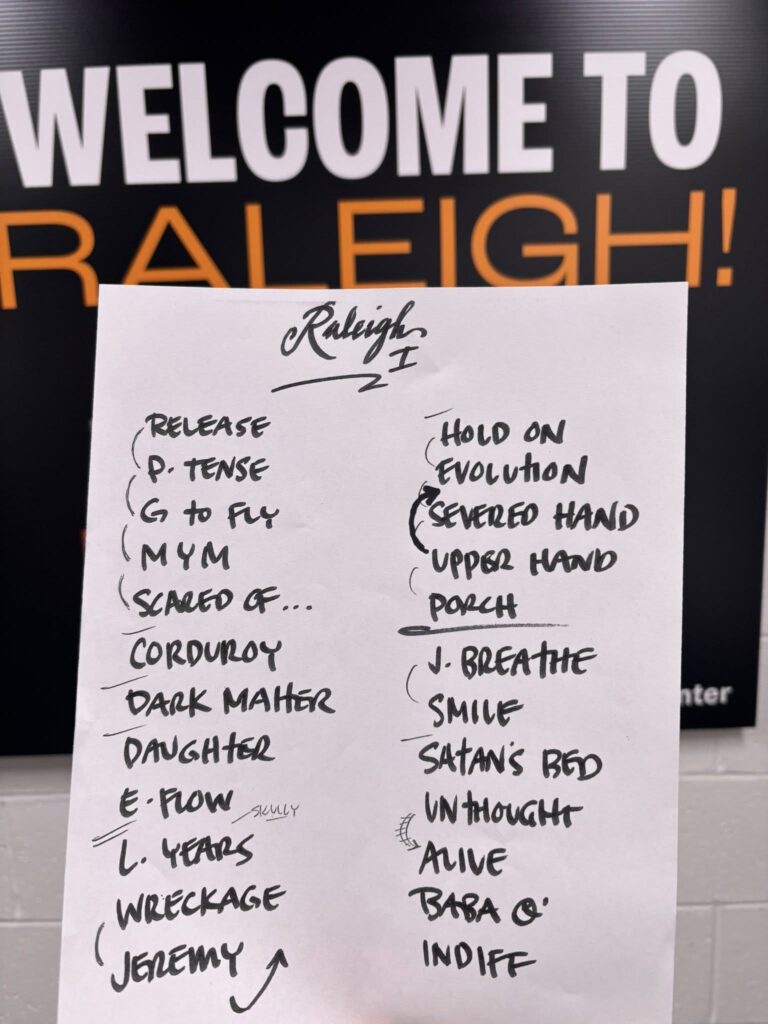 WELCOME TO
RALEIGH!
nter
Raleigh
I
RELEASE
P. TENSE
G to FLY
MYM
SCARED OF...
CORDUROY
DARK MATTER
DAUGHTER
E. FLOW
SKULLY
L. YEARS
WRECKAGE
JEREMY
HOLD ON
EVOLUTION
SEVERED HAND
UPPER HAND
PORCH
J. BREATHE
SMILE
SATAN'S BED
UNTHOUGHT
ALIVE
BABA O'
INDIFF